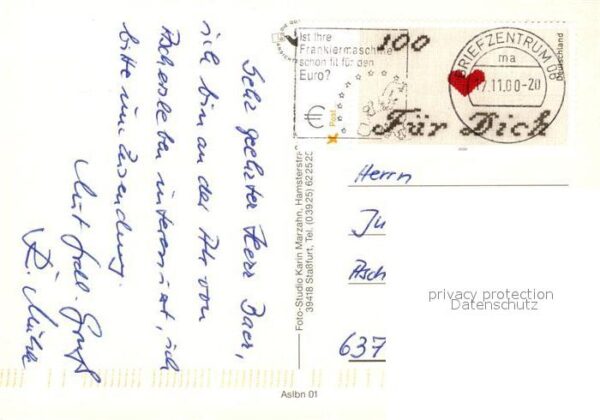 Sehr geehrter Herr Baer,
ich bin an der AK von
Aschersleben interessiert, ich
bitte um Zusendung.
Mit frdl. Gruß
R.
Ist Ihre
Frankiermaschine
schon fit für den
Euro?
100
Für Dich
Deutschland
Post
BRIEFZENTRUM 06
ma
17.11.00-20
Foto-Studio Karin Marzahn, Hamsterstr
39418 Staßfurt, Tel. (03925) 622525
Herrn
Ju
Asch
637
privacy protection
Datenschutz
Aslbn 01